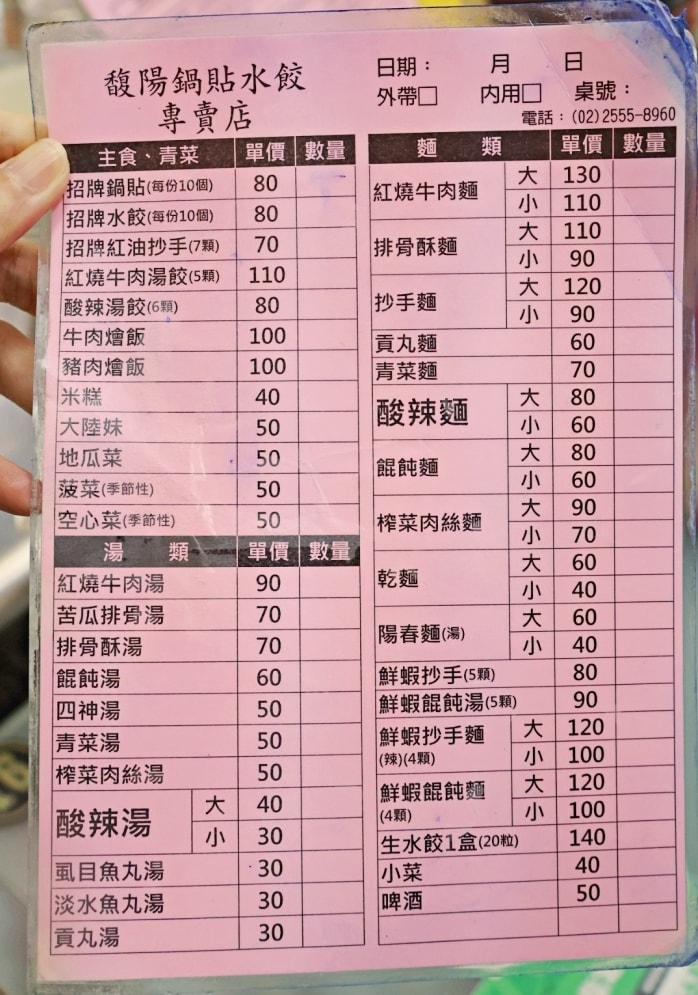 馥陽鍋貼水餃
專賣店
日期： 月 日
外帶□ 內用□ 桌號：
電話：(02)2555-8960
主食、青菜 單價 數量
招牌鍋貼(每份10個) 80
招牌水餃(每份10個) 80
招牌紅油抄手(7顆) 70
紅燒牛肉湯餃(5顆) 110
酸辣湯餃(6顆) 80
牛肉燴飯 100
豬肉燴飯 100
米糕 40
大陸妹 50
地瓜菜 50
菠菜(季節性) 50
空心菜(季節性) 50
湯 類 單價 數量
紅燒牛肉湯 90
苦瓜排骨湯 70
排骨酥湯 70
餛飩湯 60
四神湯 50
青菜湯 50
榨菜肉絲湯 50
酸辣湯 大 40
小 30
虱目魚丸湯 30
淡水魚丸湯 30
貢丸湯 30
麵 類 單價 數量
紅燒牛肉麵 大 130
小 110
排骨酥麵 大 110
小 90
抄手麵 大 120
小 90
貢丸麵 60
青菜麵 70
酸辣麵 大 80
小 60
餛飩麵 大 80
小 60
榨菜肉絲麵 大 90
小 70
乾麵 大 60
小 40
陽春麵(湯) 大 60
小 40
鮮蝦抄手(5顆) 80
鮮蝦餛飩湯(5顆) 90
鮮蝦抄手麵 大 120
(辣)(4顆) 小 100
鮮蝦餛飩麵 大 120
(4顆) 小 100
生水餃1盒(20粒) 140
小菜 40
啤酒 50